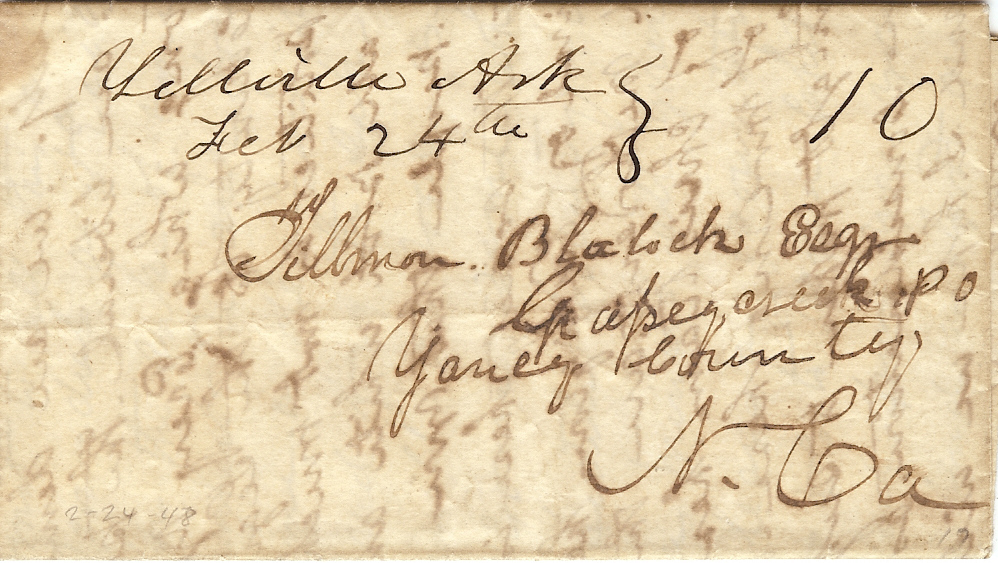 Yellville Ark
Feb 24th
10
Tillmon Blalock Esqr
Creek P O
Yancy County
N. Ca
2-24-48